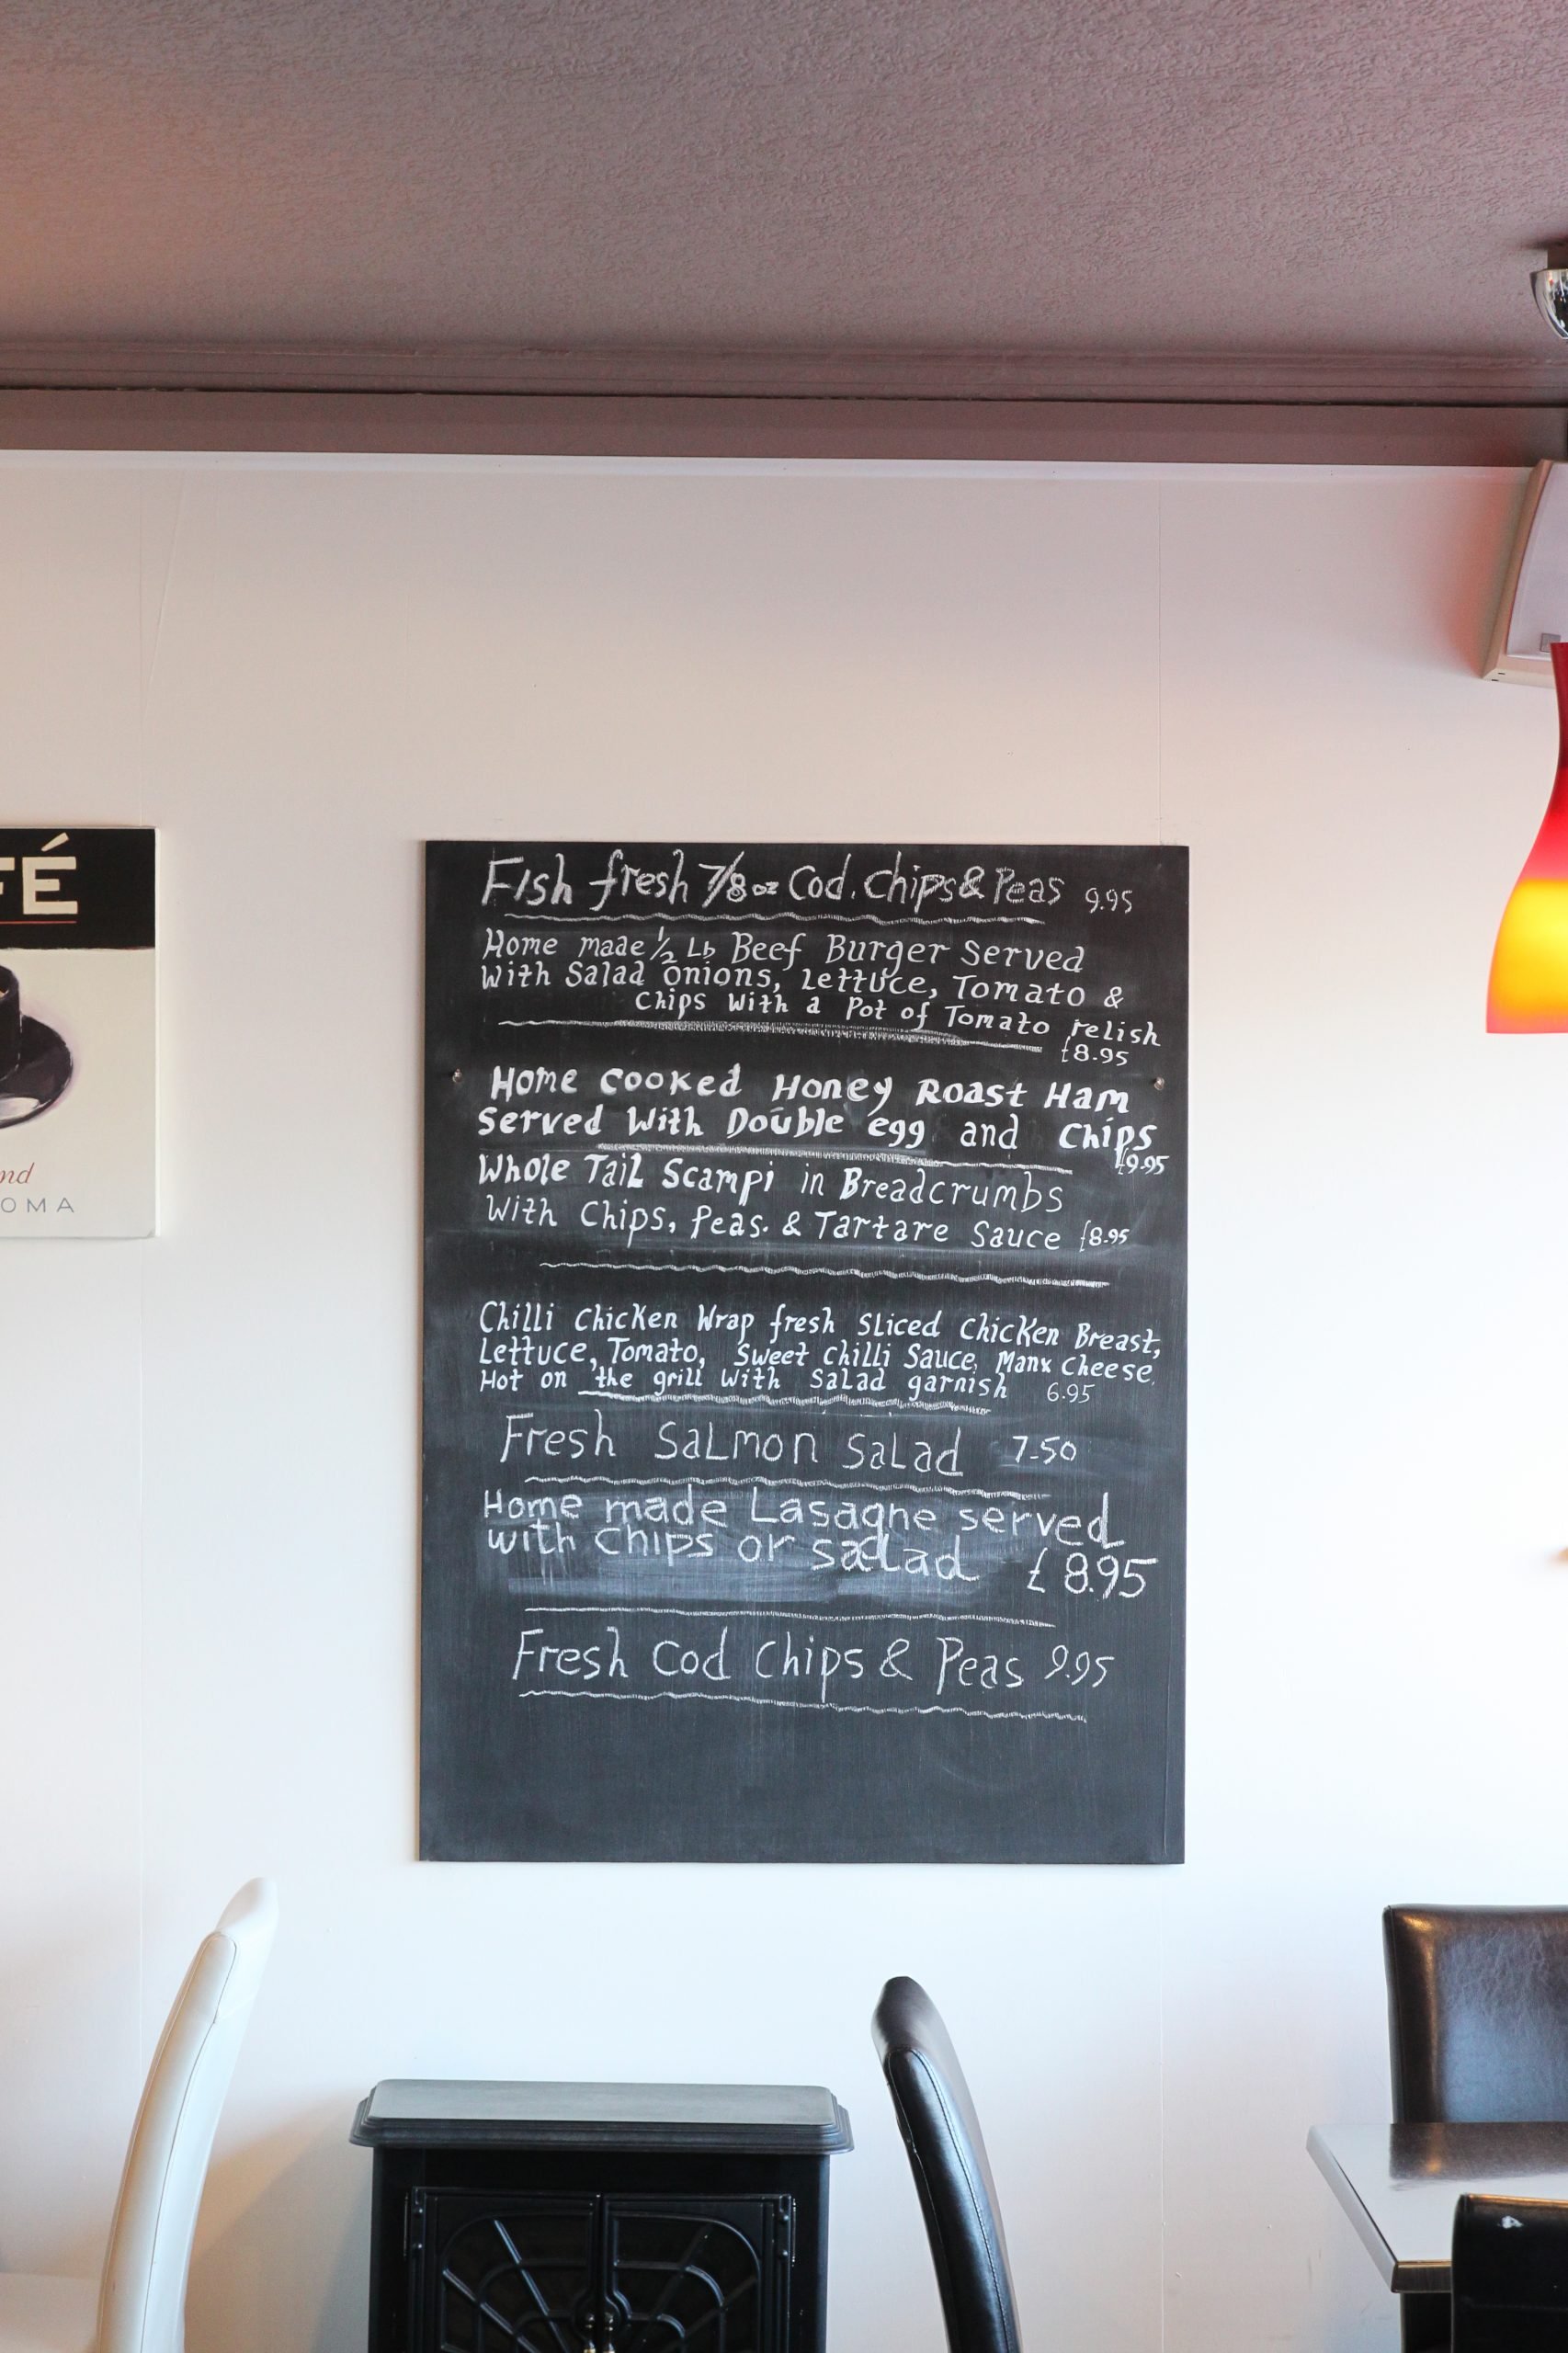 FÉ
nd
OMA
Fish fresh 7/8oz Cod. Chips & Peas 9.95
Home made 1/2 Lb Beef Burger Served
With Salad onions, Lettuce, Tomato &
Chips With a Pot of Tomato relish
£8.95
Home cooked Honey Roast Ham
Served With Double egg and Chips
£9.95
Whole Tail Scampi in Breadcrumbs
With Chips, Peas. & Tartare Sauce £8.95
Chilli Chicken Wrap fresh Sliced Chicken Breast,
Lettuce, Tomato, Sweet Chilli Sauce, Manx Cheese.
Hot on the grill With Salad garnish 6.95
Fresh Salmon Salad 7-50
Home made Lasagne served
with chips or salad £8.95
Fresh Cod Chips & Peas 9.95